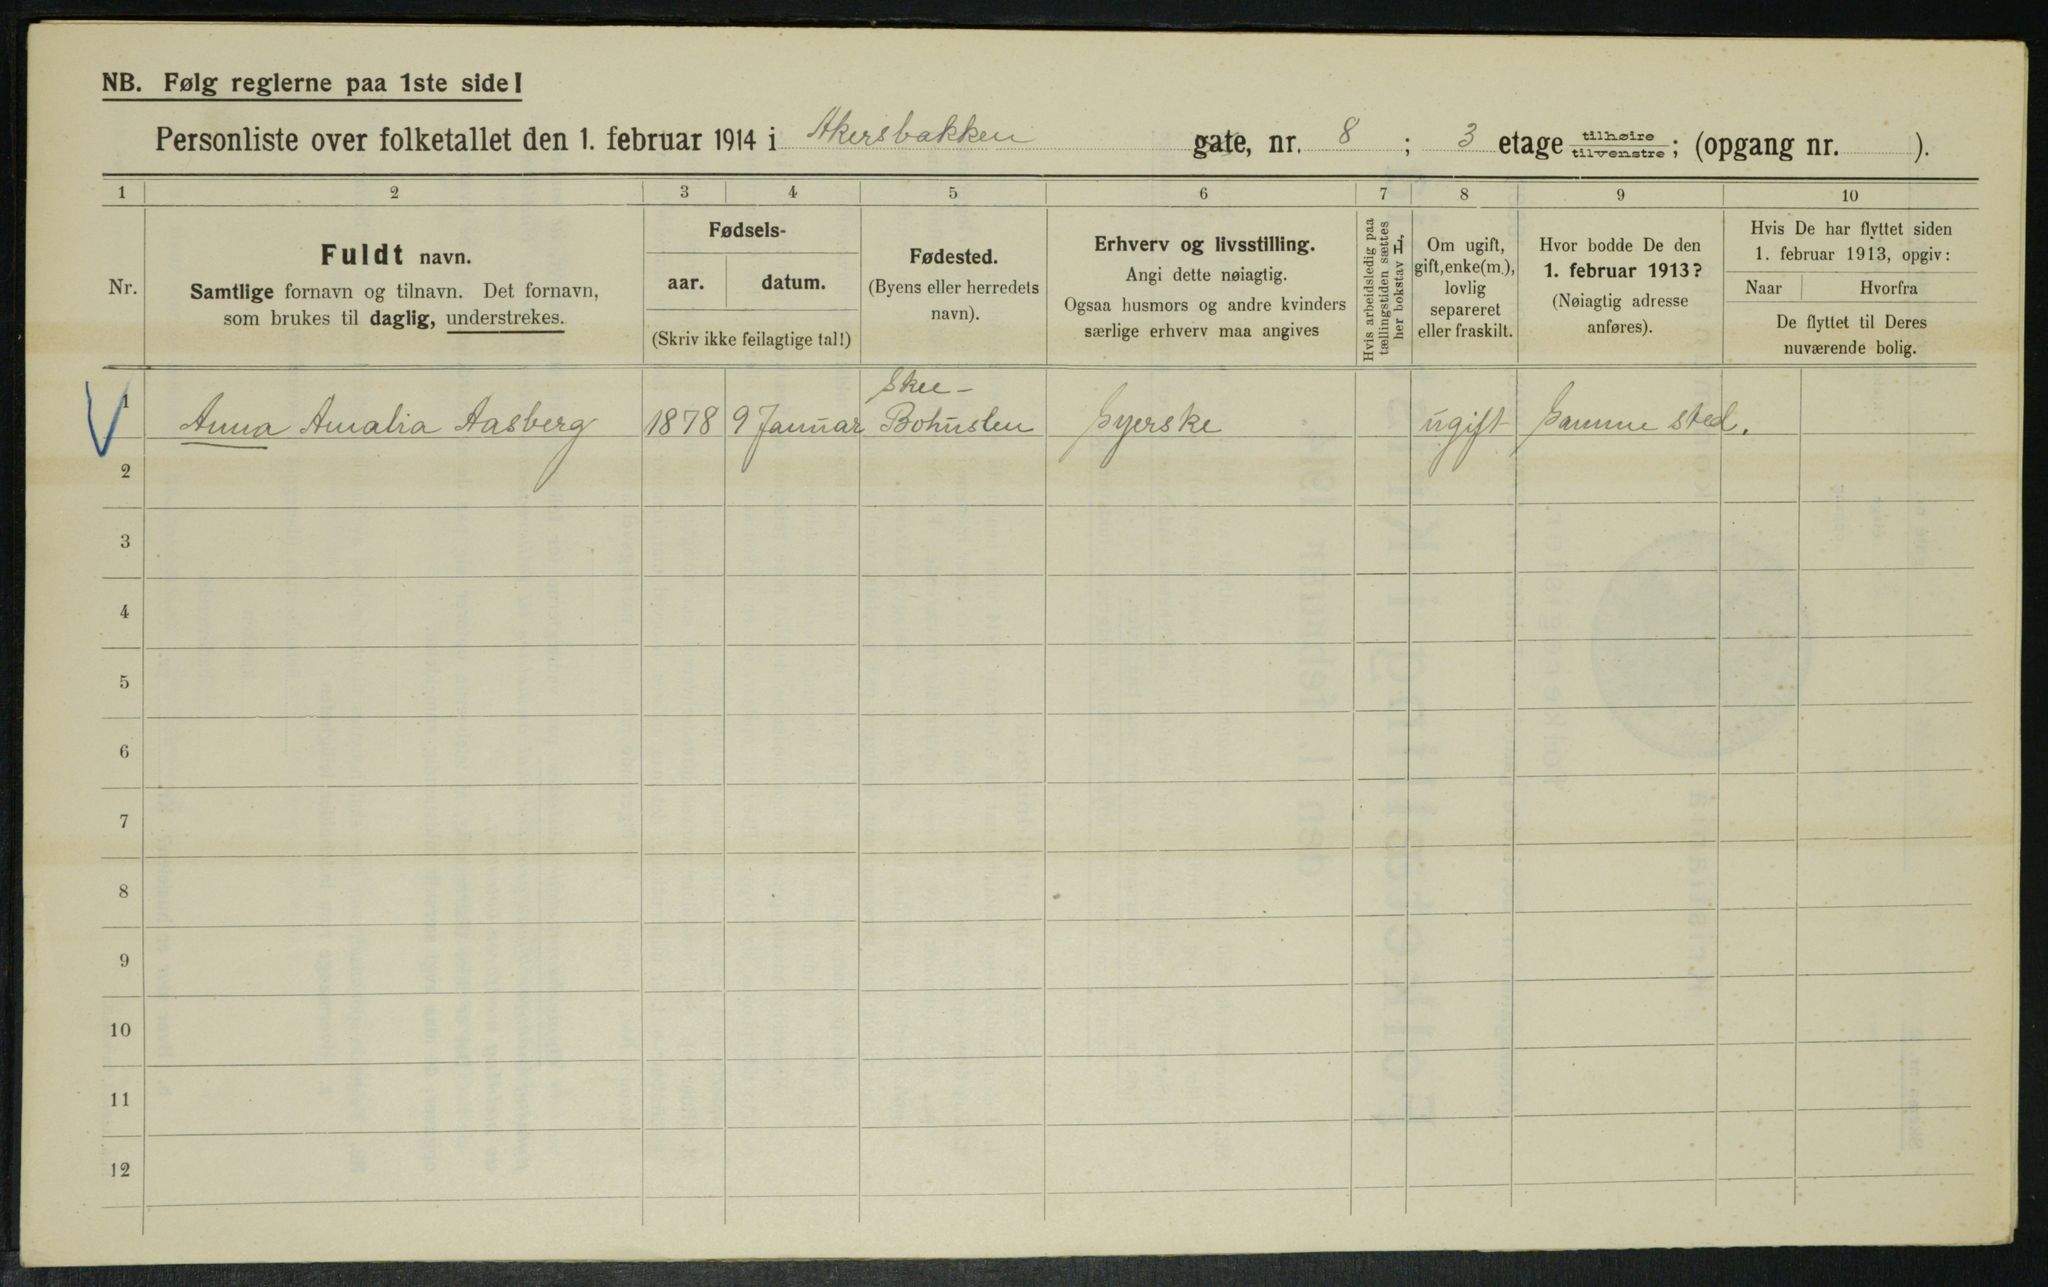 NB. Følg reglerne paa 1ste side!
Personliste over folketallet den 1. februar 1914 i Akersbakken gate, nr. 8 ; 3 etage tilhøire tilvenstre ; (opgang nr. ).
1 2 3 4 5 6 7 8 9 10
Nr.
Fuldt navn.
Samtlige fornavn og tilnavn. Det fornavn,
som brukes til daglig, understrekes.
Fødsels-
aar. datum.
(Skriv ikke feilagtige tal!)
Fødested.
(Byens eller herredets
navn).
Erhverv og livsstilling.
Angi dette nøiagtig.
Ogsaa husmors og andre kvinders
særlige erhverv maa angives
Hvis arbeidsledig paa
tællingstiden sættes
her bokstav L,
Om ugift,
gift, enke(m.),
lovlig
separeret
eller fraskilt.
Hvor bodde De den
1. februar 1913?
(Nøiagtig adresse
anføres).
Hvis De har flyttet siden
1. februar 1913, opgiv:
Naar Hvorfra
De flyttet til Deres
nuværende bolig.
Skee-
1 Anna Amalia Aasberg 1878 9 Januar Bohuslen Syerske ugift Samme sted.
2
3
4
5
6
7
8
9
10
11
12